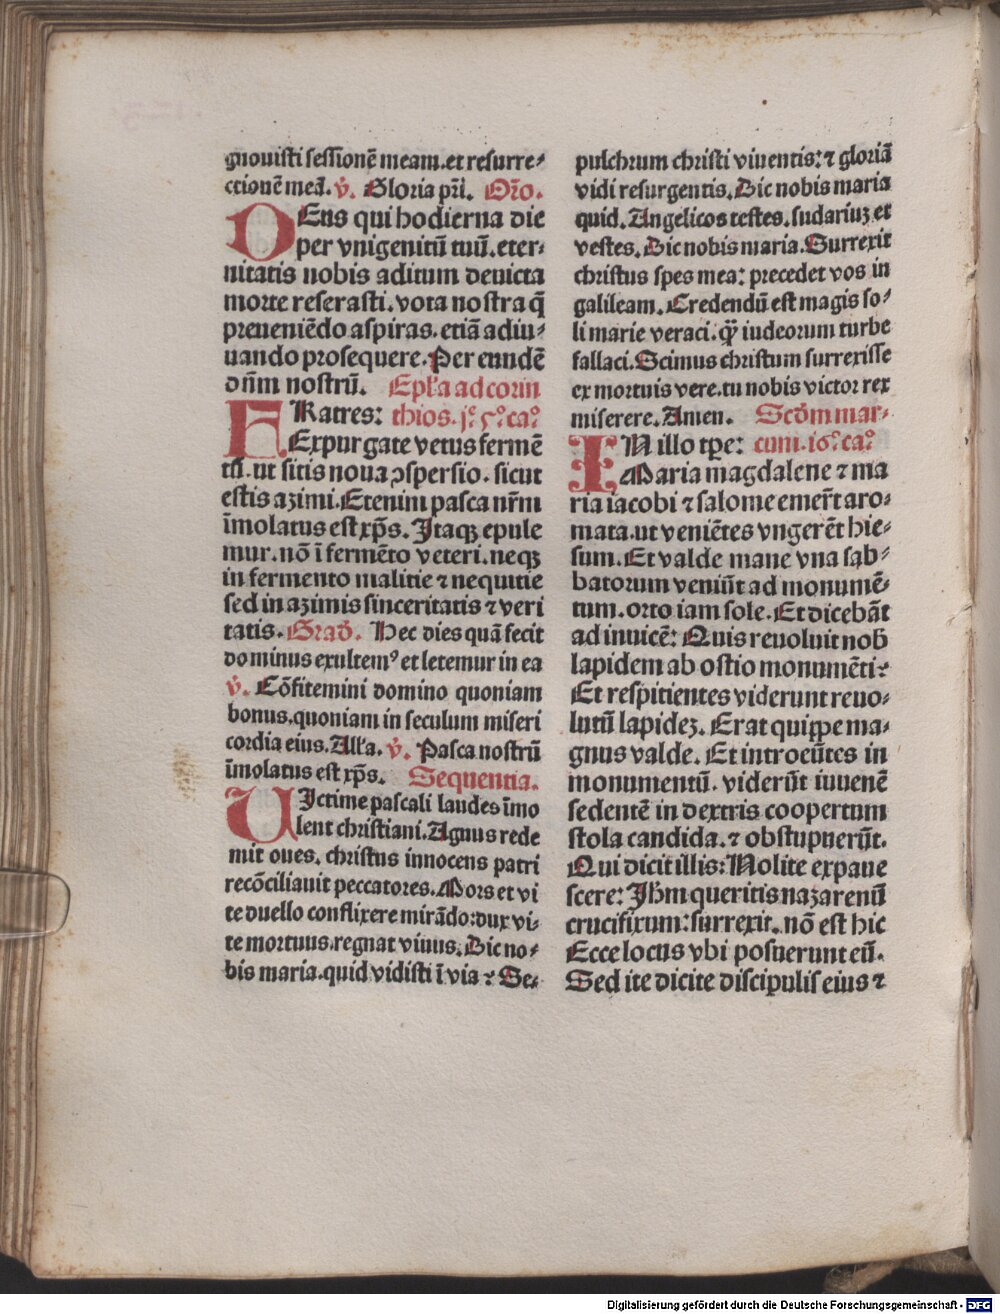 gnouisti sessionē meam.et resurre⸗
ctionē meā. v̄. Gloria pr̄i. Or̄o.
DEus qui hodierna die
per vnigenitū tuū.eter⸗
nitatis nobis aditum deuicta
morte reserasti.vota nostra q̄
preueniēdo aspiras.etiā adiu⸗
uando prosequere.Per eundē
dn̄m nostrū. Epl̄a ad corin
FRatres: thios.jº.5º.caº
Expurgate vetus fermē
tū.ut sitis noua ꝯspersio.sicut
estis azimi.Etenim pasca nr̄m
īmolatus est xp̄s. Itaqꝫ epule
mur.nō ī fermēto veteri.neqꝫ
in fermento malitie ⁊ nequitie
sed in azimis sinceritatis ⁊ veri
tatis. Grad̄. Hec dies quā fecit
dominus exultemꝰ et letemur in ea
v̄. Cōfitemini domino quoniam
bonus.quoniam in seculum miseri
cordia eius.All̄a. v̄. Pasca nostrū
īmolatus est xp̄s. Sequentia.
UIctime pascali laudes īmo
lent christiani.Agnus rede
mit oues. christus innocens patri
recōciliauit peccatores.Mors et vi
te duello conflixere mirādo:dux vi⸗
te mortuus.regnat viuus.Dic no⸗
bis maria.quid vidisti ī via? Se⸗
pulchrum christi viuentis:⁊ gloriā
vidi resurgentis.Dic nobis maria
quid.Angelicos testes.sudariuꝫ et
vestes.Dic nobis maria.Surrexit
christus spes mea: precedet vos in
galileam.Credendū est magis so⸗
li marie veraci.qꝫ̄ iudeorum turbe
fallaci.Scimus christum surrexisse
ex mortuis vere.tu nobis victor rex
miserere.Amen. Scd̄m mar⸗
IN illo tꝑe: cum.i6º.caº
Maria magdalene ⁊ ma
ria iacobi ⁊ salome emer̄t aro⸗
mata.ut veniētes vngerēt hie⸗
sum.Et valde mane vna sab⸗
batorum veniūt ad monumē⸗
tum.orto iam sole.Et dicebāt
ad inuicē: Quis reuoluit nob̄
lapidem ab ostio monumēti?
Et respitientes viderunt reuo⸗
lutū lapideꝫ. Erat quippe ma⸗
gnus valde. Et introeūtes in
monumentū. viderūt iuuenē
sedentē in dextris coopertum
stola candida.⁊ obstupuerūt.
Qui dicit illis: Nolite expaue
scere: Jh̄m queritis nazarenū
crucifixum:surrexit.nō est hic
Ecce locus vbi posuerunt eū.
Sed ite dicite discipulis eius ⁊
Digitalisierung gefördert durch die Deutsche Forschungsgemeinschaft - DFG